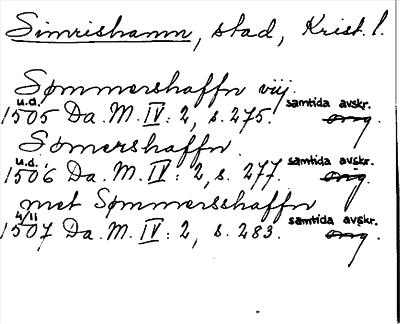 Simrishamn, stad, Krist. l.
Sømmershaffn vij.
u.d. samtida avskr.
1505 Da. M. IV: 2, s. 275. orig.
Sømershaffn
u.d. samtida avskr.
1506 Da. M. IV: 2, s. 277. orig.
met Sømmersshaffn
4/11 samtida avskr.
1507 Da. M. IV: 2, s. 283. orig.